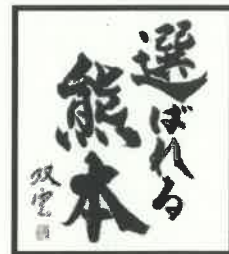 選ばれる
熊本
双雲